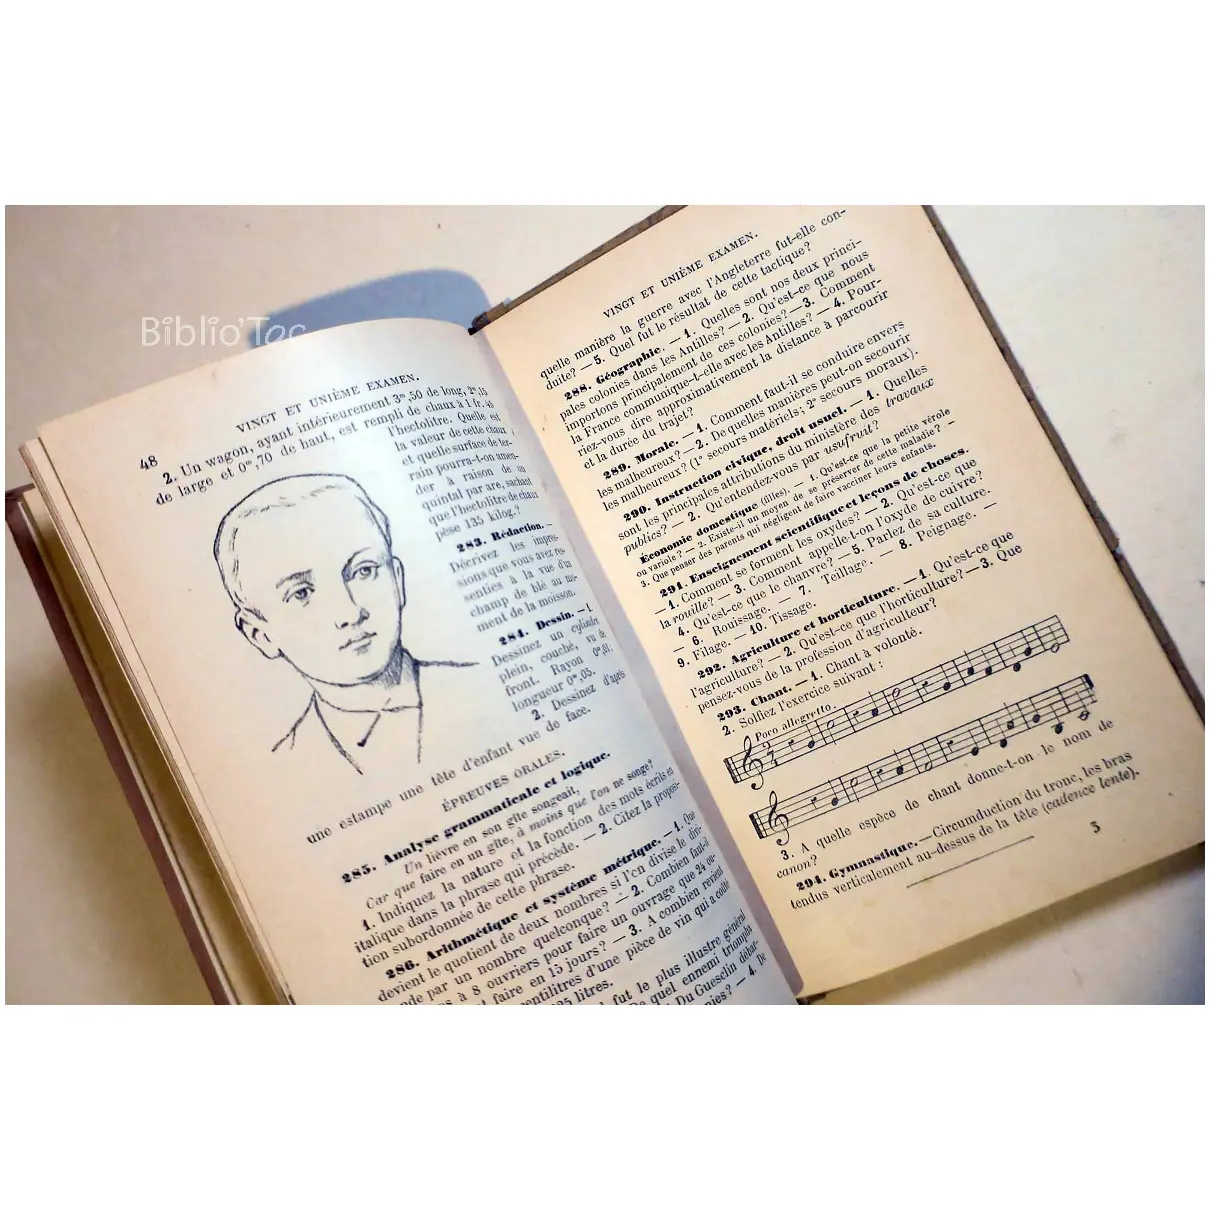 Biblio'Toc
48
VINGT ET UNIÈME EXAMEN.
2. Un wagon, ayant intérieurement 3m,50 de long, 2m,15
de large et 0m,70 de haut, est rempli de chaux à 1 fr. 45
l'hectolitre. Quelle est
la valeur de cette chaux
et quelle surface de ter-
rain pourra-t-on amen-
der à raison de un
quintal par are, sachant
que l'hectolitre de chaux
pèse 135 kilog.?
283. Rédaction. —
Décrivez les impres-
sions que vous avez res-
senties à la vue d'un
champ de blé au mo-
ment de la moisson.
284. Dessin. — 1.
Dessinez un cylindre
plein, couché, vu de
front. Rayon 0m,01;
longueur 0m,05.
2. Dessinez d'après
une estampe une tête d'enfant vue de face.
ÉPREUVES ORALES.
285. Analyse grammaticale et logique.
Un lièvre en son gîte songeait,
Car que faire en un gîte, à moins que l'on ne songe?
1. Indiquez la nature et la fonction des mots écrits en
italique dans la phrase qui précède. — 2. Citez la proposi-
tion subordonnée de cette phrase.
286. Arithmétique et système métrique. — 1. Que
devient le quotient de deux nombres si l'on divise le divi-
dende par un nombre quelconque? — 2. Combien faut-il
à 8 ouvriers pour faire un ouvrage que 24 ou-
faire en 15 jours? — 3. A combien revient
centilitres d'une pièce de vin qui a coûté
litres.
fut le plus illustre général
De quel ennemi triompha
Du Guesclin débar-
— 4. De
VINGT ET UNIÈME EXAMEN.
quelle manière la guerre avec l'Angleterre fut-elle con-
duite? — 5. Quel fut le résultat de cette tactique?
288. Géographie. — 1. Quelles sont nos deux princi-
pales colonies dans les Antilles? — 2. Qu'est-ce que nous
importons principalement de ces colonies? — 3. Comment
la France communique-t-elle avec les Antilles? — 4. Pour-
riez-vous dire approximativement la distance à parcourir
et la durée du trajet?
289. Morale. — 1. Comment faut-il se conduire envers
les malheureux? — 2. De quelles manières peut-on secourir
les malheureux? (1° secours matériels; 2° secours moraux).
290. Instruction civique, droit usuel. — 1. Quelles
sont les principales attributions du ministère des travaux
publics? — 2. Qu'entendez-vous par usufruit?
Économie domestique (filles) — 1. Qu'est-ce que la petite vérole
ou variole? — 2. Existe-il un moyen de se préserver de cette maladie? —
3. Que penser des parents qui négligent de faire vacciner leurs enfants.
291. Enseignement scientifique et leçons de choses.
— 1. Comment se forment les oxydes? — 2. Qu'est-ce que
la rouille? — 3. Comment appelle-t-on l'oxyde de cuivre?
4. Qu'est-ce que le chanvre? — 5. Parlez de sa culture.
— 6. Rouissage. — 7. Teillage. — 8. Peignage. —
9. Filage. — 10. Tissage.
292. Agriculture et horticulture. — 1. Qu'est-ce que
l'agriculture? — 2. Qu'est-ce que l'horticulture? — 3. Que
pensez-vous de la profession d'agriculteur?
293. Chant. — 1. Chant à volonté.
2. Solfiez l'exercice suivant :
Poco allegretto.
3. A quelle espèce de chant donne-t-on le nom de
canon?
294. Gymnastique. — Circumduction du tronc, les bras
tendus verticalement au-dessus de la tête (cadence lente).
3